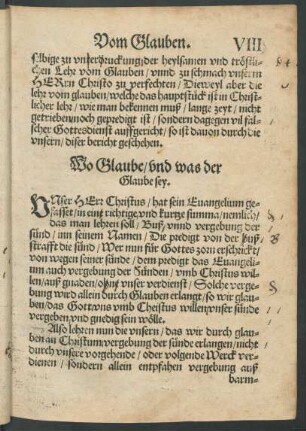 Vom Glauben. VIII
sälbige zu vnsterdruckung/der heylsamen vnd tröstli-
chen Lehr vom Glauben/vnnd zu schmach vnserm
HERrn Christo zu verfechten/Dieweyl aber die
lehr vom glauben/welche das hauptstück ist in Christ-
licher lehr/wie man bekennen muß/lange zeyt/nicht
getrieben noch gepredigt ist/sondern dagegen vil fal-
scher Gottesdienst auffgericht/so ist dauon durch die
vnsern/diser bericht geschehen.
Wo Glaube/vnd was der
Glaube sey.
VNser HErr Christus/hat sein Euangelium ge-
fasset/in eine richtige vnd kurtze summa/nemlich/
das man lehren soll/Buß/vnnd vergebung der
sünd/inn seinem Namen/Die predigt von der Buß/
strafft die sünd/Wer nun für Gottes zorn erschrickt/
von wegen seiner sünde/dem predigt das Euangeli-
um auch vergebung der Sünden/vmb Christus wil-
len/auß gnaden/ohn vnser verdienst/Solche verge-
bung wird allein durch Glauben erlangt/so wir glau-
ben/das Gott vns vmb Christus willen/vnser sünde
vergeben/vnd gnedig sein wölle.
Also lehren nun die vnsern/das wir durch glau-
ben an Christum vergebung der sünde erlangen/nicht
durch vnsere vorgehende/oder volgende Werck ver-
dienen/sondern allein entpfahen vergebung auß
barm-